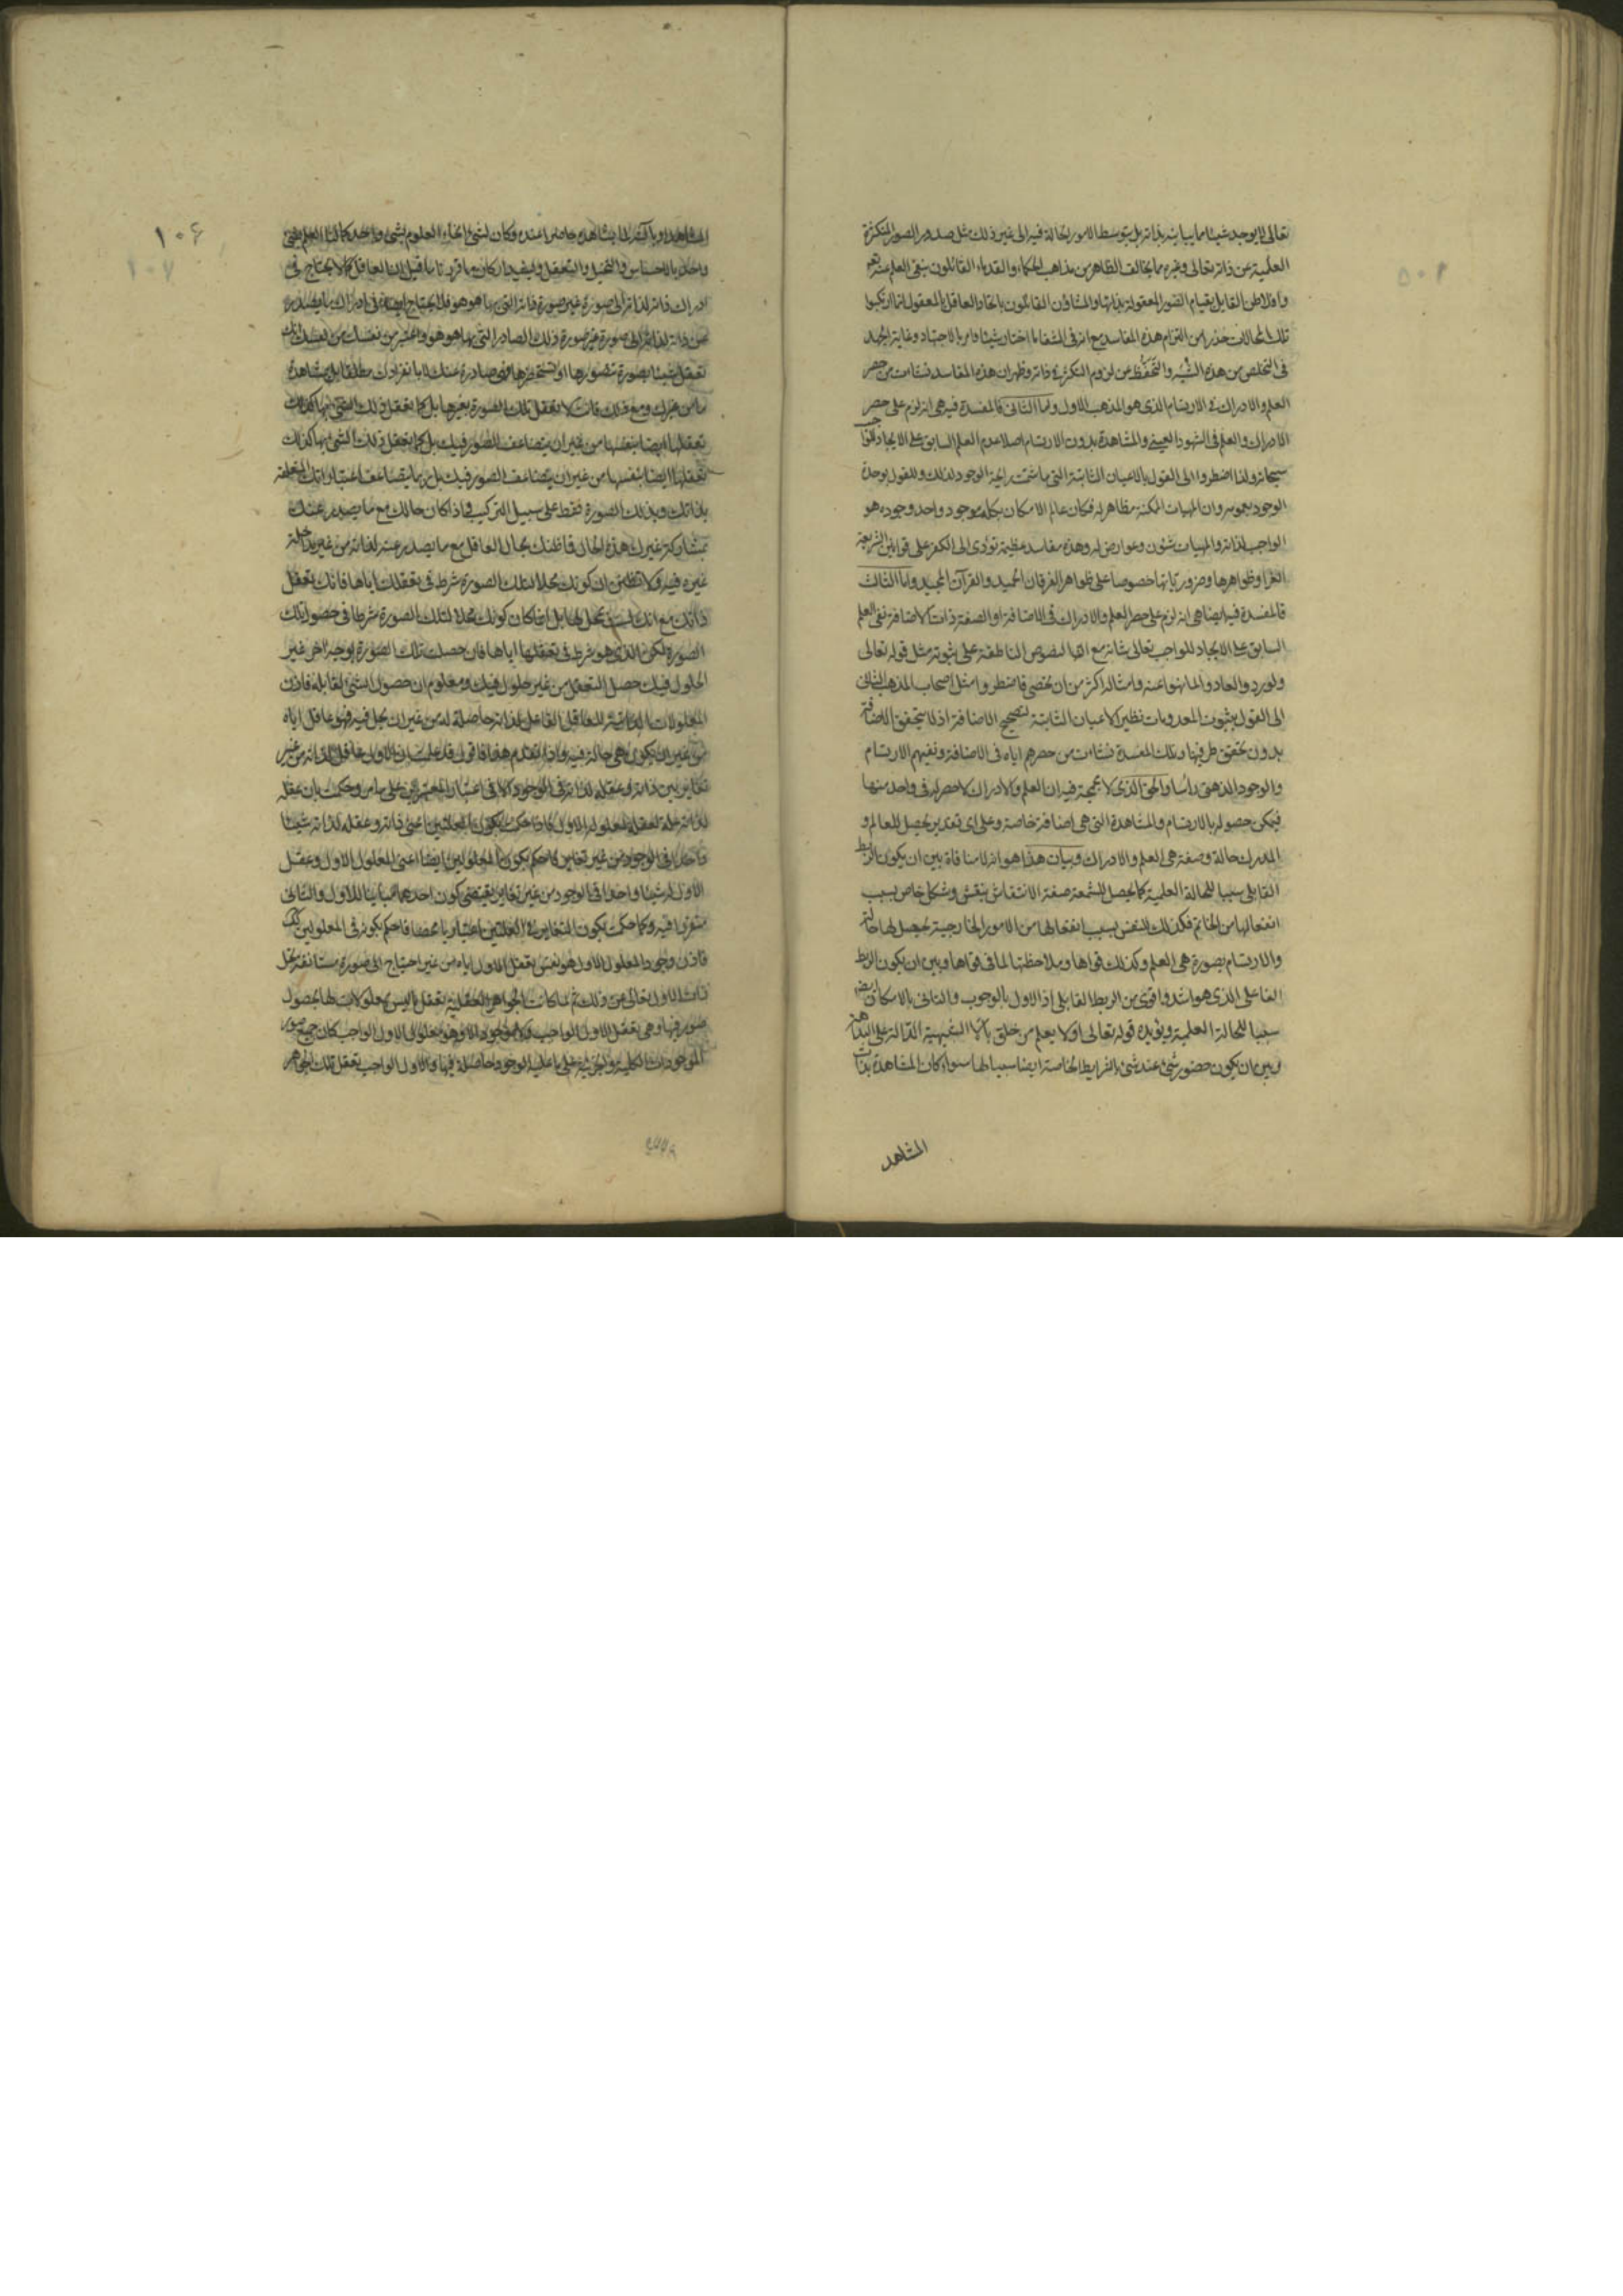 تعالى لا يوجد شيئا مما يباينه بذاته بل بتوسط الامور الحالة فيه الى غير ذلك مثل صدور الصور المتكثرة
العلمية عن ذاته تعالى وغيره مما يخالف الظاهر من مذاهب الحكماء والقدماء القائلون بنفى العلم عنه تعالى
وافلاطن القايل بقيام الصور المعقولة بذاتها والمشاؤن القائلون باتحاد العاقل بالمعقول انما ارتكبوا
تلك المحالات حذرا من التزام هذه المفاسد مع انه فى الشفا ما اختار شيئا وامر بالاجتهاد وغاية الجهد
فى التخلص من هذه الشبه والتحفظ عن لزوم التكثر فى ذاته وظهر ان هذه المفاسد نشات من حصر
العلم والادراك فى الارتسام الذى هو المذهب الاول واما الثانى فالمفسدة فيه هى انه لزم على حصر
الادراك والعلم فى الشهود العينى والمشاهدة بدون الارتسام اصلا عدم العلم السابق على الايجاد
سبحانه ولذا اضطروا الى القول بالاعيان الثابتة التى ما شمت رايحة الوجود لذلك وللقول بوحدة
الوجود بعمومه وان المهيات الممكنة مظاهر له فكان عالم الامكان بكله موجود واحد وجوده هو
الواجب لذاته والمهيات شئون وعوارض له وهذه مفاسد عظيمة تؤدى الى الكفر على قوانين الشريعة
الغرا وظواهرها وضرورياتها خصوصا على ظواهر الفرقان الحميد والقرآن المجيد واما الثالث
فالمفسدة فيه ايضا هى انه لزم على حصر العلم والادراك فى الاضافة او الصفة ذات الاضافة نفى العلم
السابق على الايجاد للواجب تعالى شانه مع النصوص الناطقة على ثبوته مثل قوله تعالى
ولو ردوا لعادوا لما نهوا عنه وامثاله اكثر من ان تحصى فاضطروا مثل اصحاب المذهب الثانى
الى القول بثبوت المعدومات نظير الاعيان الثابتة لتصحيح الاضافة اذ لا يتحقق الاضافة
بدون تحقق طرفيها وتلك المفسدة نشات من حصرهم اياه فى الاضافة ونفيهم الارتسام
والوجود الذهنى راسا والحق الذى لا مجمجة فيه ان العلم والادراك لا حصر له فى واحد منها
فيمكن حصوله بالارتسام والمشاهدة التى هى اضافة خاصة وعلى اى تقدير يحصل للعالم و
المدرك حالة وصفة هى العلم والادراك وبيان هذا هو انه لا منافاة بين ان يكون الربط
القابلى سببا للحالة العلمية كما يحصل للشمعة صفة الانتقاش بنقش وشكل خاص بسبب
انفعالها من الخاتم فكذلك للنفس بسبب انفعالها من الامور الخارجية يحصل لها حالة
والارتسام بصورة هى العلم وكذلك قواها وملاحظتها لما فى قواها وبين ان يكون الربط
الفاعلى الذى هو اشد واقوى من الربط القابلى اذ الاول بالوجوب والثانى بالامكان ايضا
سببا للحالة العلمية ويؤيده قوله تعالى اولا يعلم من خلق التنبيهية الدالة على البداهة
وبين ان يكون حضور شىء عند شىء بالشرايط الخاصة ايضا سببا لها سواء كان المشاهدة بذات
المشاهد
١٠۶
١٠٧
المشاهد او بآلته لما يشاهده حاضرا عنده فكان لشىء انحاء العلوم بشىء واحد كما لنا العلم بشىء
واحد بالاحساس والتخيل والتعقل وليفيد اركان ما قررنا ما قيل ان العاقل كما لا يحتاج فى
ادراك ذاته لذاته الى صورة غير صورة ذاته التى بها هو هو فلا يحتاج ايضا فى ادراك ما يصدر
عن ذاته لذاته الى صورة غير صورة ذلك الصادر التى بها هو هو واعتبر من نفسك انك
تعقل شيئا بصورة تتصورها او تستحضرها فهى صادرة عنك لا بانفرادك مطلقا بل بمشاركة
ما من غيرك ومع ذلك فانت لا تعقل تلك الصورة بغيرها بل كما تعقل ذلك الشىء بها كذلك
تعقلها ايضا بنفسها من غير ان يتضاعف الصور فيك بل كما تعقل ذلك الشىء بها كذلك
تعقلها ايضا بنفسها من غير ان يتضاعف الصور فيك بل ربما يتضاعف اعتباراتك المتعلقة
بذاتك وبذلك الصورة فقط على سبيل التركيب فاذا كان حالك مع ما يصدر عنك
بمشاركة غيرك هذه الحال فما ظنك بحال العاقل مع ما يصدر عنه لذاته من غير مداخلة
غيره فيه ولا تظنن ان كونك محلا لتلك الصورة شرط فى تعقلك اياها فانك تعقل
ذاتك مع انك لست بمحل لها بل انما كان كونك محلا لتلك الصورة شرطا فى حصول تلك
الصورة لك الذى هو شرط فى تعقلها اياها فان حصلت تلك الصورة بوجه اخر غير
الحلول فيك حصل التعقل من غير حلول فيك ومعلوم ان حصول الشىء لقابله فاذن
المعلولات الذاتية للعاقل الفاعل لذاته حاصلة له من غير ان يحل فيه فهو عاقل اياه
من غير ان يكون هى حالة فيه واذا تقدم هذا فاقول قد علمت ان الاول عاقل لذاته من غير
تغاير بين ذاته وعقله لذاته فى الوجود الا فى اعتبار المعتبرين على ما مر وحكمت بان عقله
لذاته علة لعقله لمعلوله الاول فاذا حكمت بكون العلتين اعنى ذاته وعقله لذاته شيئا
واحدا فى الوجود من غير تغاير فاحكم بكون المعلولين ايضا اعنى المعلول الاول وعقل
الاول له شيئا واحدا فى الوجود من غير تغاير يقتضى كون احدهما مباينا للاول والثانى
متقررا فيه وكما حكمت بكون التغاير فى العلتين اعتباريا محضا فاحكم بكونه فى المعلولين كذلك
فاذن وجود المعلول الاول هو نفس تعقل الاول اياه من غير احتياج الى صورة مستانفة تحل
ذات الاول تعالى عن ذلك ثم لما كانت الجواهر العقلية تعقل ما ليس بمعلولات لها بحصول
صور فيها وهى تعقل الاول الواجب ولا موجود الا وهو معلول للاول الواجب كان جميع صور
الموجودات الكلية والجزئية على ما عليه الوجود حاصلة فيها والاول الواجب تعقل تلك الجواهر